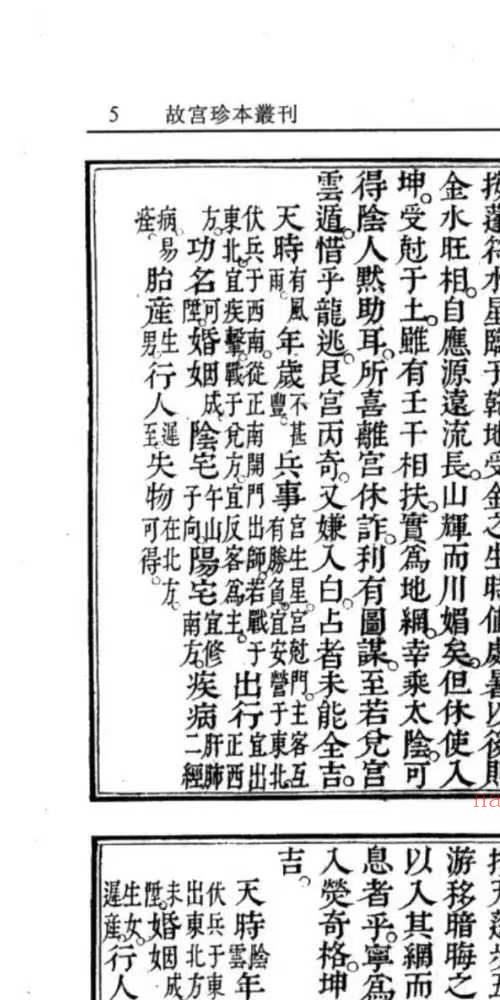 5 故宮珍本叢刊
蓬符水星臨于乾地受金之生時值處暑以後則
金水旺相。自應源遠流長。山輝而川媚矣。但休使入
坤。受尅于土。雖有壬干相扶。實爲地網。幸乘太陰。可
得陰人黙助耳。所喜離宮休詐。利有圖謀。至若兌宮
雲遁。惜乎龍逃。艮宮丙奇。又嫌入白。占者未能全吉。
天時有風雨。年歲不甚豐。兵事宮生星。宮尅門。主客互有勝負。宜安營于東北
伏兵于西南。從正南開門出師。若戰于東北。宜疾擊。戰于兌方。宜反客爲主。出行宜出正西
方。功名可陞。婚姻成。陰宅午山子向。陽宅宜修南方。疾病肝肺二經
病。易痊。胎產生男。行人遲至。失物在北方。可得。
游移暗晦之
以入其網而
息者乎。寧爲
入熒奇格。坤
吉。
天時陰雲年
伏兵于東出東北方
未陞。婚姻成
生女。遲產。行人